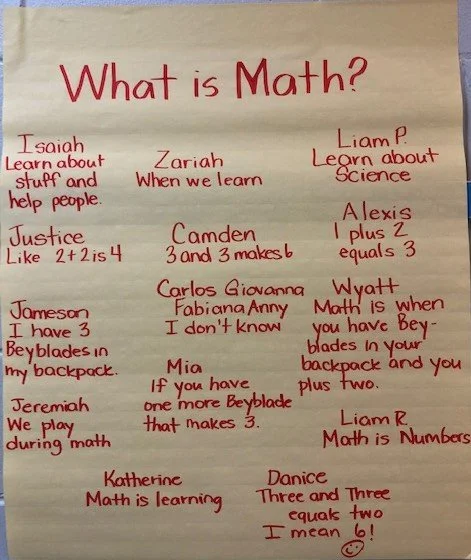 What is Math?
Isaiah
Learn about
stuff and
help people.
Zariah
When we learn
Liam P.
Learn about
Science
Justice
Like 2+2 is 4
Camden
3 and 3 makes 6
Alexis
1 plus 2
equals 3
Jameson
I have 3
Beyblades in
my backpack.
Carlos Giovanna
Fabiana Anny
I don't know
Wyatt
Math is when
you have Bey-
blades in your
backpack and you
plus two.
Mia
If you have
one more Beyblade
that makes 3.
Jeremiah
We play
during math
Liam R.
Math is Numbers
Katherine
Math is learning
Danice
Three and Three
equals two
I mean 6!